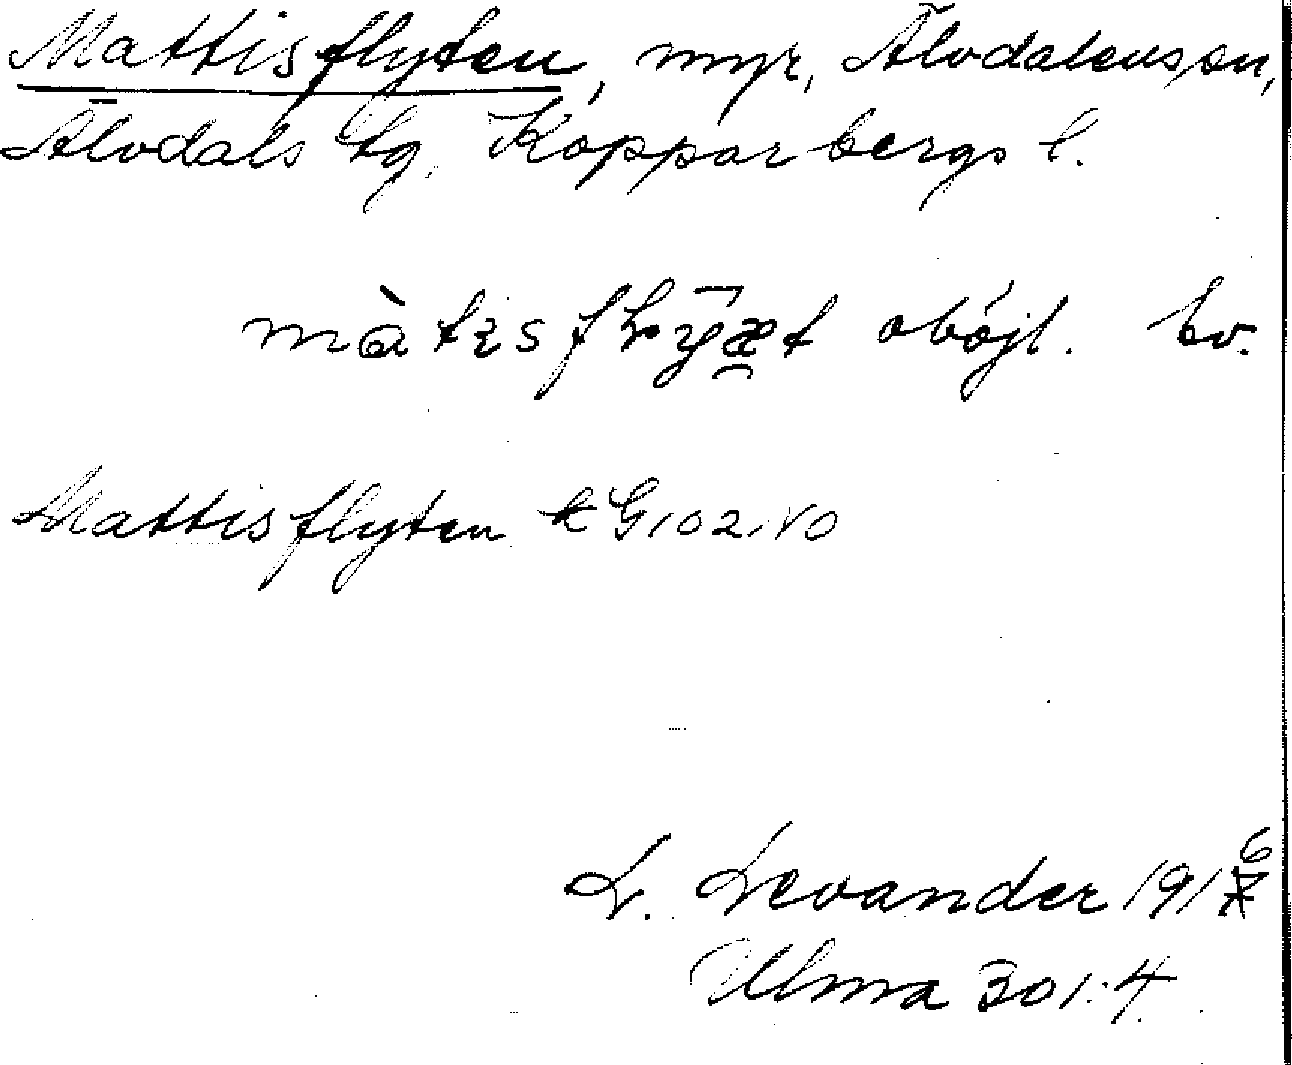 Mattisflyten, myr, Älvdalens sn,
Älvdals tg. Kopparbergs l.
oböjl. tv.
Mattisflyten
L. Levander 1916
Ulma 301:4